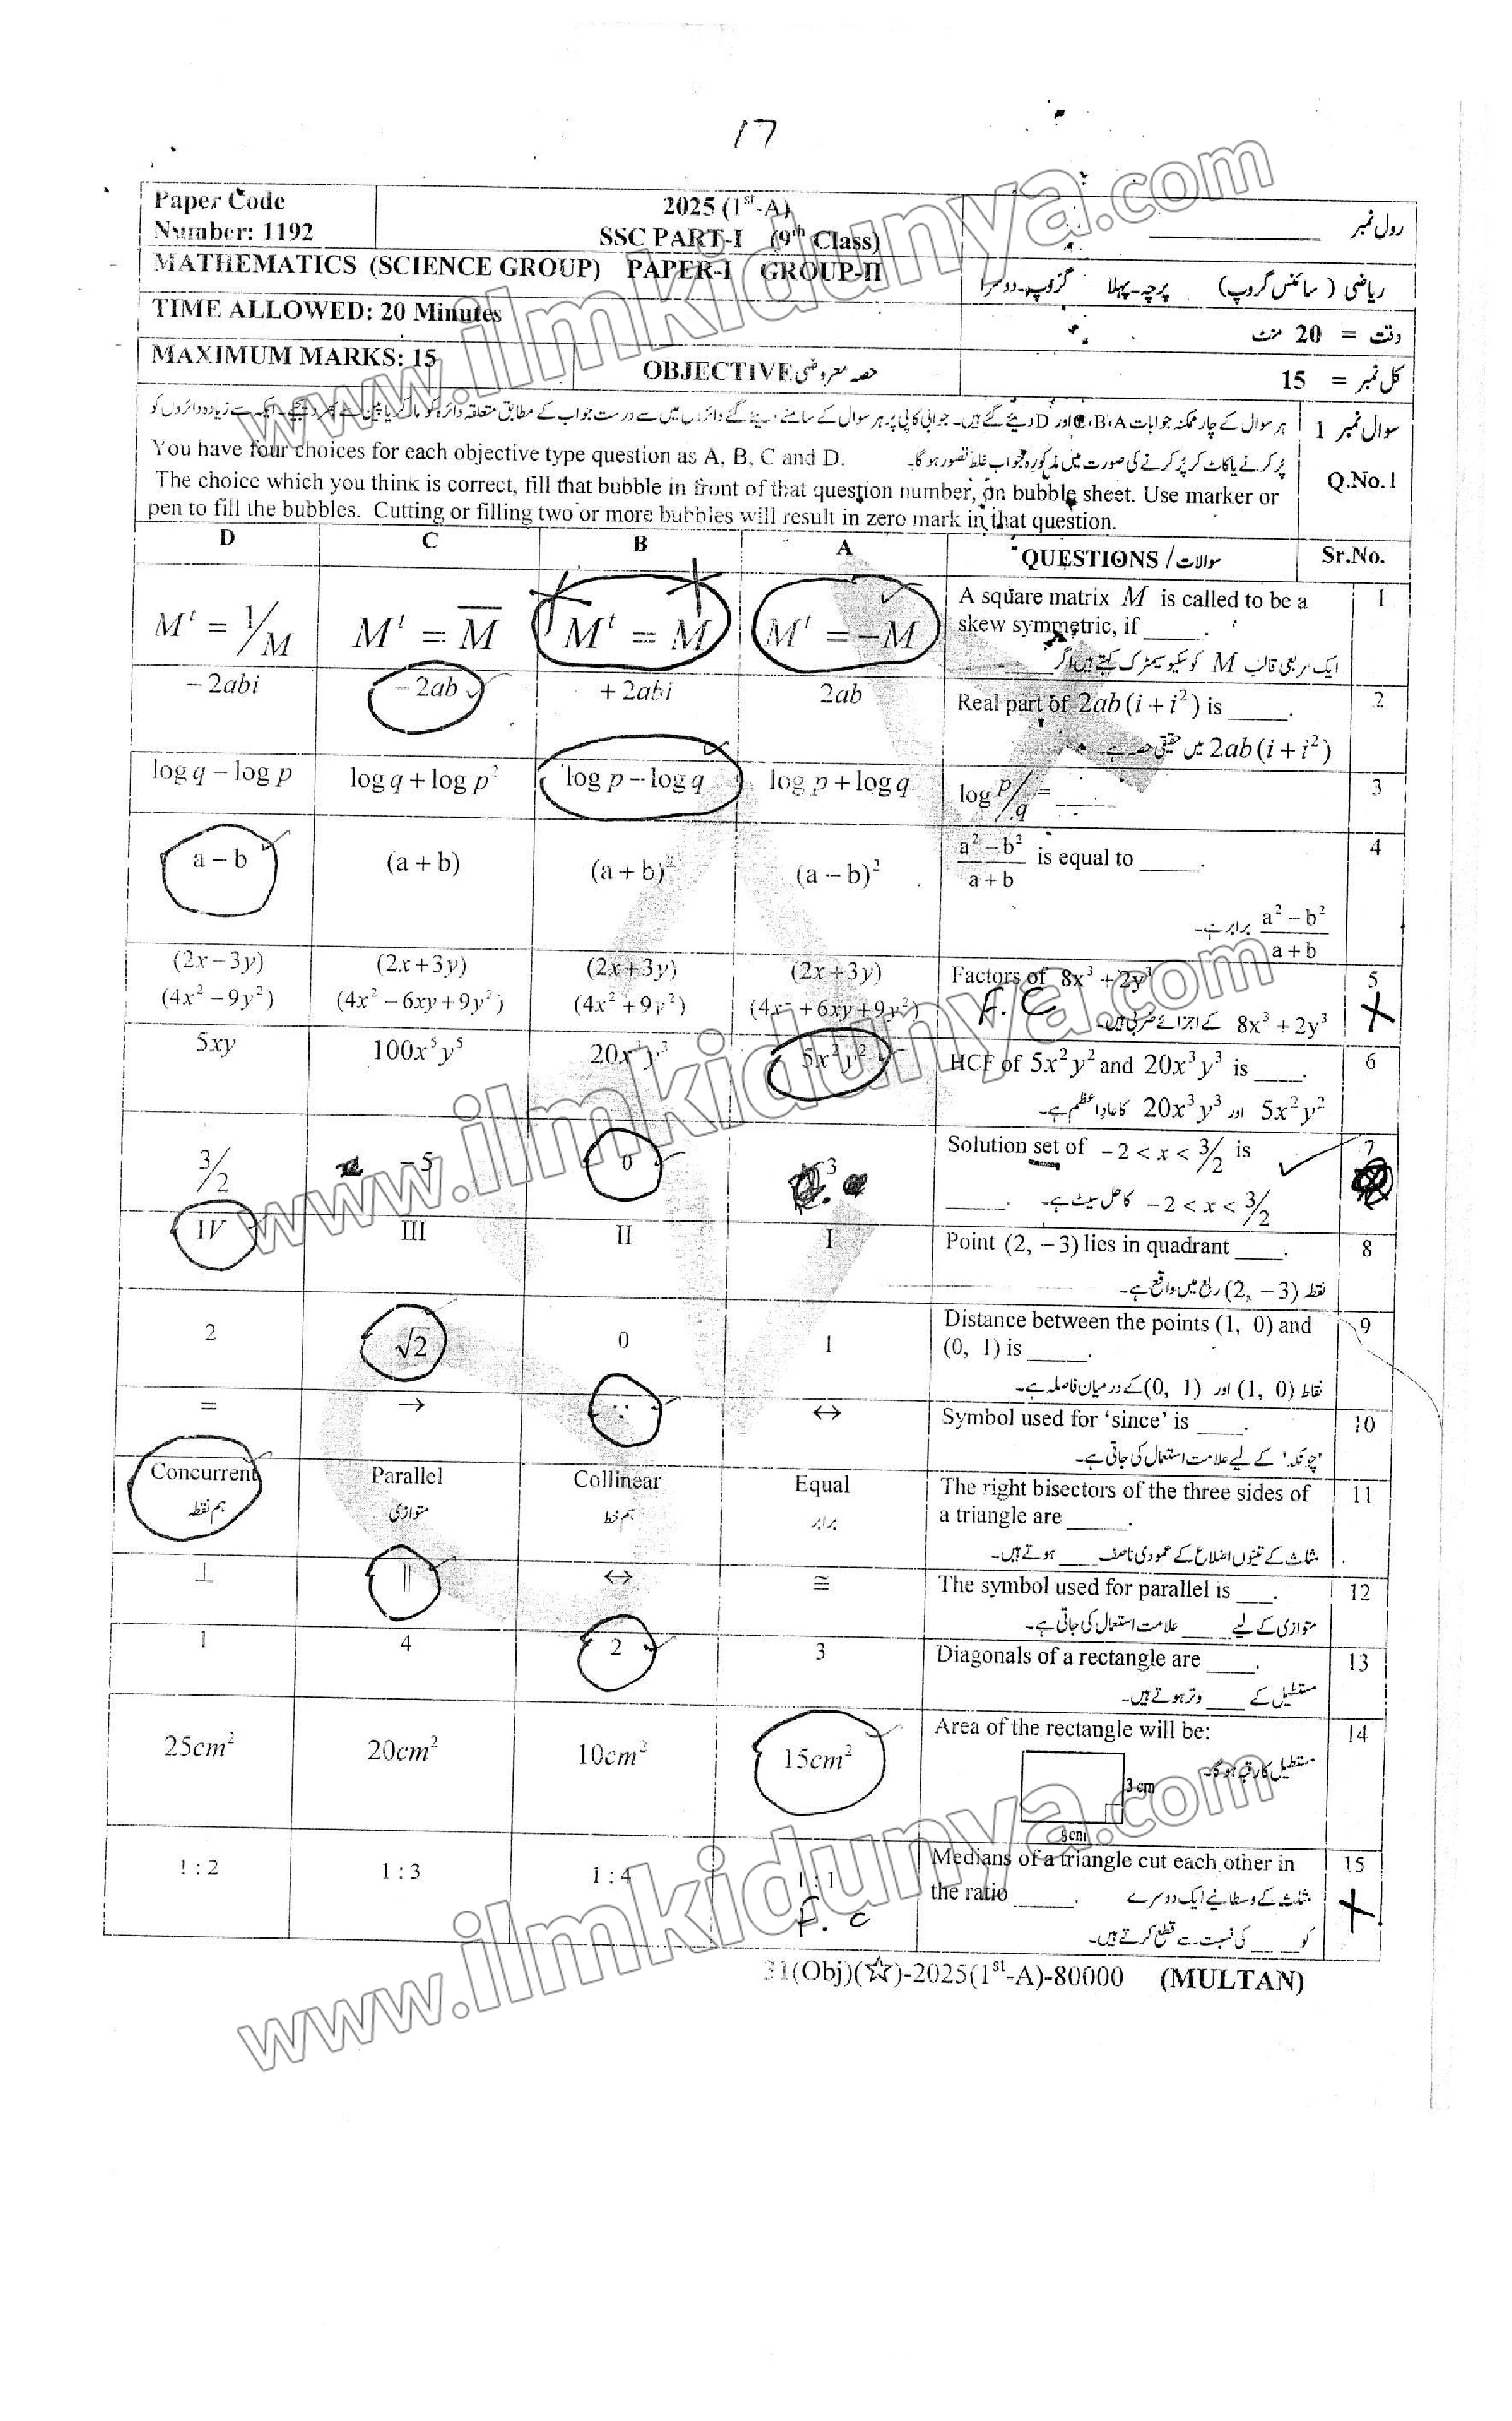 17
Paper Code
Number: 1192
2025 (1st-A)
SSC PART-I (9th Class)
رول نمبر ____________
MATHEMATICS (SCIENCE GROUP) PAPER-I GROUP-II
ریاضی ( سائنس گروپ) پرچہ۔پہلا گروپ۔دوسرا
TIME ALLOWED: 20 Minutes
وقت = 20 منٹ
MAXIMUM MARKS: 15
OBJECTIVE حصہ معروضی
کل نمبر = 15
سوال نمبر 1
ہر سوال کے چار ممکنہ جوابات A، B، C اور D دیئے گئے ہیں۔ جوابی کاپی پر ہر سوال کے سامنے دیئے گئے دائروں میں سے درست جواب کے مطابق متعلقہ دائرہ کو مارکر یا پین سے بھر دیجئے۔ ایک سے زیادہ دائروں کو
پُر کرنے یا کاٹ کر پُر کرنے کی صورت میں مذکورہ جواب غلط تصور ہو گا۔
Q.No.1
You have four choices for each objective type question as A, B, C and D.
The choice which you think is correct, fill that bubble in front of that question number, on bubble sheet. Use marker or
pen to fill the bubbles. Cutting or filling two or more bubbles will result in zero mark in that question.
D C B A QUESTIONS / سوالات Sr.No.
M^t = 1/M M^t = M̅ M^t = M M^t = −M A square matrix M is called to be a 1
skew symmetric, if _____.
ایک مربعی قالب M کو سکیو سیمٹرک کہتے ہیں اگر _____
−2abi −2ab +2abi 2ab Real part of 2ab(i + i²) is _____. 2
2ab(i + i²) میں حقیقی حصہ ہے۔
log q − log p log q + log p² log p − log q log p + log q log p/q = _____ 3
a − b (a + b) (a + b)² (a − b)² a² − b² / a + b is equal to _____. 4
a² − b² / a + b برابر ہے۔
(2x−3y) (2x+3y) (2x+3y) (2x+3y) Factors of 8x³ + 2y³ 5
(4x² − 9y²) (4x² − 6xy + 9y²) (4x² + 9y²) (4x² + 6xy + 9y²) F.C
8x³ + 2y³ کے اجزائے ضربی ہیں۔
5xy 100x⁵y⁵ 20x³y³ 5x²y² HCF of 5x²y² and 20x³y³ is ____. 6
5x²y² اور 20x³y³ کا عاد اعظم ہے۔
3/2 −5 0 3 Solution set of −2 < x < 3/2 is 7
_____. −2 < x < 3/2 کا حل سیٹ ہے۔
IV III II I Point (2, −3) lies in quadrant ____. 8
نقطہ (2, −3) ربع میں واقع ہے۔
2 √2 0 1 Distance between the points (1, 0) and 9
(0, 1) is _____.
نقاط (1, 0) اور (0, 1) کے درمیان فاصلہ ہے۔
= → ∵ ↔ Symbol used for ‘since’ is ____. 10
'چونکہ' کے لیے علامت استعمال کی جاتی ہے۔
Concurrent Parallel Collinear Equal The right bisectors of the three sides of 11
ہم نقطہ متوازی ہم خط برابر a triangle are _____.
مثلث کے تینوں اضلاع کے عمودی ناصف ____ ہوتے ہیں۔
⊥ ∥ ↔ ≅ The symbol used for parallel is ___. 12
متوازی کے لیے _____ علامت استعمال کی جاتی ہے۔
1 4 2 3 Diagonals of a rectangle are ____. 13
مستطیل کے ____ وتر ہوتے ہیں۔
25cm² 20cm² 10cm² 15cm² Area of the rectangle will be: 14
مستطیل کا رقبہ ہو گا۔
3 cm
5cm
1 : 2 1 : 3 1 : 4 1 : 1 Medians of a triangle cut each other in 15
F.C
the ratio _____. مثلث کے وسطانیے ایک دوسرے
کو ____ کی نسبت سے قطع کرتے ہیں۔
31(Obj)(☆)-2025(1st-A)-80000 (MULTAN)
www.ilmkidunya.com
www.ilmkidunya.com
www.ilmkidunya.com